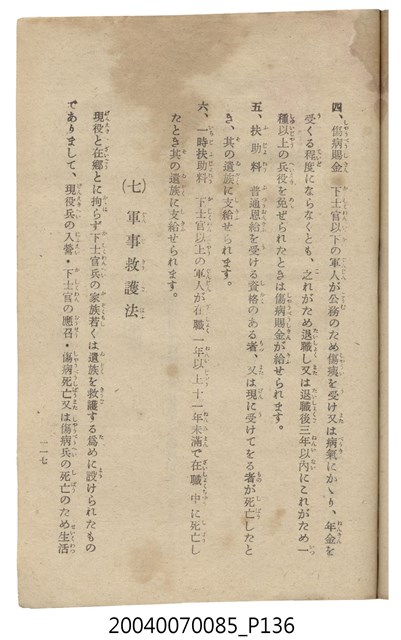 四、傷病賜金　下士官以下の軍人が公務のため傷痍を受け又は病氣にかゝり、年金を
受くる程度にならなくとも、之れがため退職し又は退職後三年以内にこれがため一
種以上の兵役を免ぜられたときは傷病賜金が給せられます。
五、扶助料　普通恩給を受ける資格のある者、又は現に受けてをる者が死亡したと
き、其の遺族に支給せられます。
六、一時扶助料　下士官以上の軍人が在職一年以上十一年未滿で在職中に死亡し
たとき其の遺族に支給せられます。
（七）軍事救護法
現役と在郷とに拘らず下士官兵の家族若くは遺族を救護する爲めに設けられたもの
でありまして、現役兵の入營・下士官の應召・傷病死亡又は傷病兵の死亡のため生活
二一七
20040070085_P136